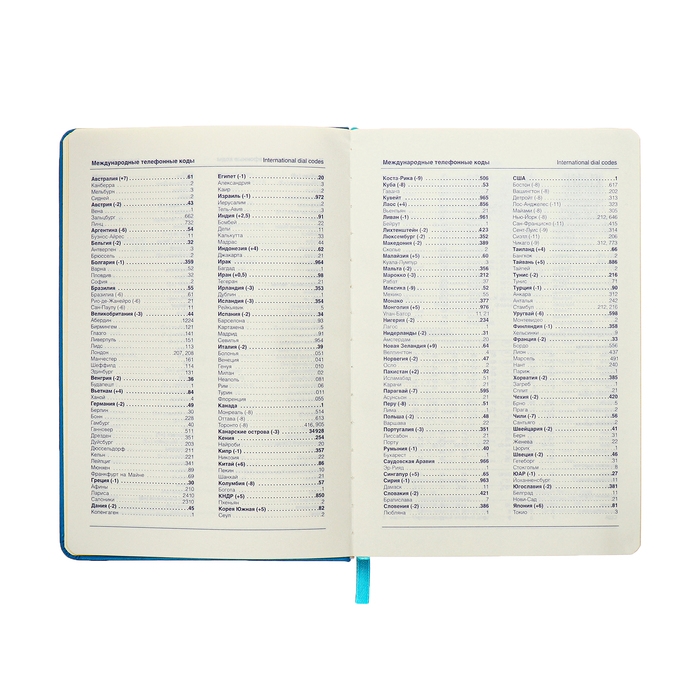 Международные телефонные коды International dial codes
Австралия (+7) 61
Канберра 2
Мельбурн 3
Сидней 2
Австрия (-2) 43
Вена 1
Зальцбург 662
Линц 732
Аргентина (-6) 54
Буэнос-Айрес 11
Бельгия (-2) 32
Антверпен 3
Брюссель 2
Болгария (-1) 359
Варна 52
Пловдив 32
София 2
Бразилия 55
Бразилиа (-6) 61
Рио-де-Жанейро (-6) 21
Сан-Паулу (-6) 11
Великобритания (-3) 44
Абердин 1224
Бирмингем 121
Глазго 141
Ливерпуль 151
Лидс 113
Лондон 207, 208
Манчестер 161
Шеффилд 114
Эдинбург 131
Венгрия (-2) 36
Будапешт 1
Вьетнам (+4) 84
Ханой 4
Германия (-2) 49
Берлин 30
Бонн 228
Гамбург 40
Ганновер 511
Дрезден 351
Дуйсбург 203
Дюссельдорф 211
Кельн 221
Лейпциг 341
Мюнхен 89
Франкфурт на Майне 69
Греция (-1) 30
Афины 210
Лариса 2410
Салоники 2310
Дания (-2) 45
Копенгаген 1
Египет (-1) 20
Александрия 3
Каир 2
Израиль (-1) 972
Иерусалим 2
Тель-Авив 3
Индия (+2,5) 91
Бомбей 22
Дели 11
Калькутта 33
Мадрас 44
Индонезия (+4) 62
Джакарта 21
Ирак 964
Багдад 1
Иран (+0,5) 98
Тегеран 21
Ирландия (-3) 353
Дублин 1
Исландия (-3) 354
Рейкьявик 1
Испания (-2) 34
Барселона 93
Картахена 5
Мадрид 91
Севилья 954
Италия (-2) 39
Болонья 051
Венеция 041
Генуя 010
Милан 02
Неаполь 081
Рим 06
Турин 011
Флоренция 055
Канада 1
Монреаль (-8) 514
Оттава (-8) 613
Торонто (-8) 416, 905
Канарские острова (-3) 34928
Кения 254
Найроби 20
Кипр (-1) 357
Никозия 22
Китай (+5) 86
Пекин 10
Шанхай 21
Колумбия (-8) 57
Богота 1
КНДР (+5) 850
Пхеньян 2
Корея Южная (+5) 82
Сеул 2
Международные телефонные коды International dial codes
Коста-Рика (-9) 506
Куба (-8) 53
Гавана 7
Кувейт 965
Лаос (+4) 856
Вьентьян 21
Ливан (-1) 961
Бейрут 1
Лихтенштейн (-2) 423
Люксембург (-2) 352
Македония (-2) 389
Скопье 2
Малайзия (+5) 60
Куала-Лумпур 3
Мальта (-2) 356
Марокко (-3) 212
Рабат 37
Мексика (-9) 52
Мехико 55
Монако 377
Монголия (+5) 976
Улан-Батор 11, 21
Нигерия (-2) 234
Лагос 1
Нидерланды (-2) 31
Амстердам 20
Новая Зеландия (+9) 64
Веллингтон 4
Норвегия (-2) 47
Осло 2
Пакистан (+2) 92
Исламабад 51
Карачи 21
Парагвай (-7) 595
Асунсьон 21
Перу (-8) 51
Лима 1
Польша (-2) 48
Варшава 22
Португалия (-3) 351
Лиссабон 21
Порту 22
Румыния (-1) 40
Бухарест 1
Саудовская Аравия 966
Эр Рияд 1
Сингапур (+5) 65
Сирия (-1) 963
Дамаск 11
Словакия (-2) 421
Братислава 7
Словения (-2) 386
Любляна 1
США 1
Бостон (-8) 617
Вашингтон (-8) 202
Детройт (-8) 313
Лос-Анджелес (-11) 323
Майами (-8) 305
Нью-Йорк (-8) 212, 646
Сан-Франциско (-11) 415
Сент-Луис (-9) 314
Сиэтл (-11) 206
Чикаго (-9) 312, 773
Таиланд (+4) 66
Бангкок 2
Тайвань (+5) 886
Тайбей 2
Тунис (-2) 216
Тунис 71
Турция (-1) 90
Анкара 312
Анталья 242
Стамбул 212, 216
Уругвай (-6) 598
Монтевидео 2
Финляндия (-1) 358
Хельсинки 9
Франция (-2) 33
Бордо 556
Лион 437
Марсель 491
Нант 240
Париж 1
Хорватия (-2) 385
Загреб 1
Сплит 21
Чехия (-2) 420
Брно 5
Прага 2
Чили (-7) 56
Сантьяго 2
Швейцария (-2) 41
Берн 31
Женева 22
Цюрих 1
Швеция (-2) 46
Гетеборг 31
Стокгольм 8
ЮАР (-1) 27
Йоханнесбург 11
Югославия (-2) 381
Белград 11
Нови-Сад 21
Япония (+6) 81
Токио 3